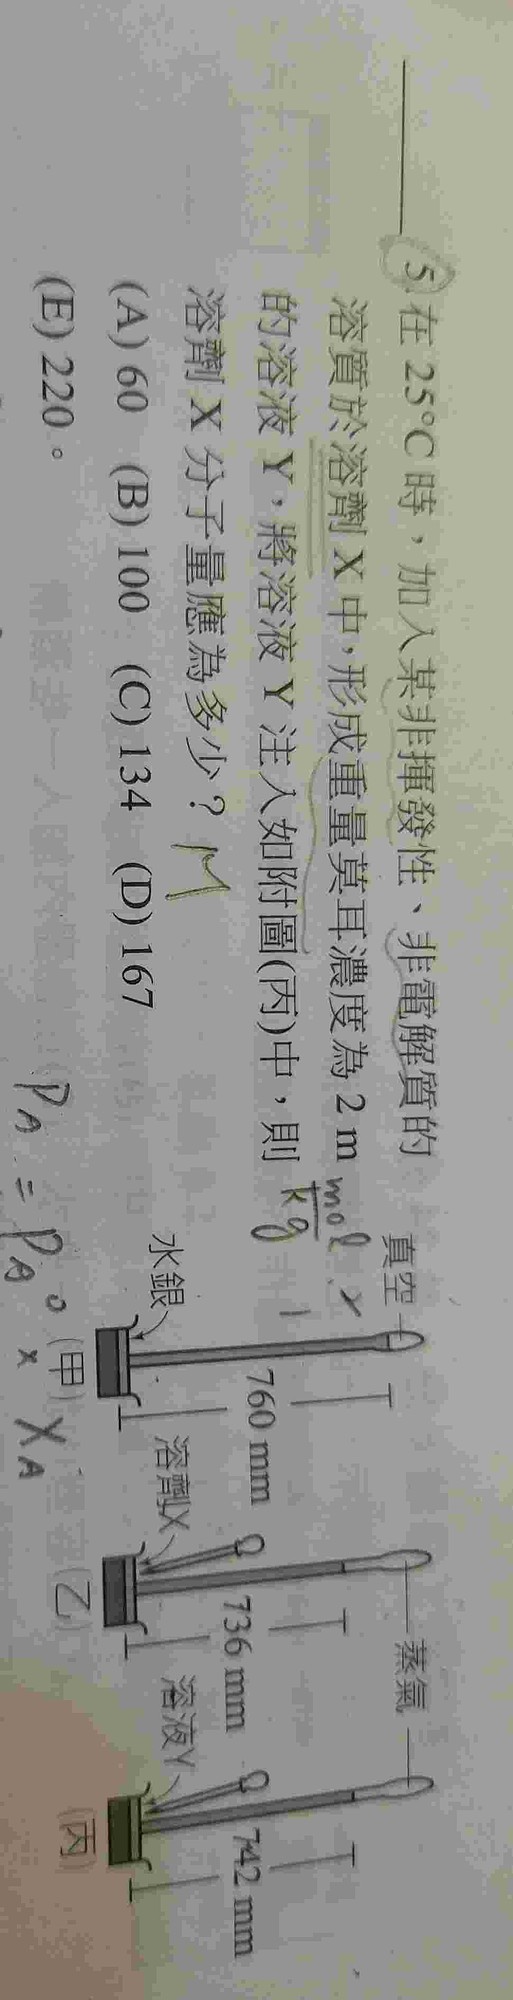 5. 在 25°C 時，加入某非揮發性、非電解質的
溶質於溶劑 X 中，形成重量莫耳濃度為 2 m
的溶液 Y，將溶液 Y 注入如附圖(丙)中，則
溶劑 X 分子量應為多少？ M
(A) 60 (B) 100 (C) 134 (D) 167
(E) 220。
mol
kg
真空
水銀
760 mm
(甲)
溶劑X
736 mm
(乙)
蒸氣
溶液Y
742 mm
(丙)
PA = PA° × XA